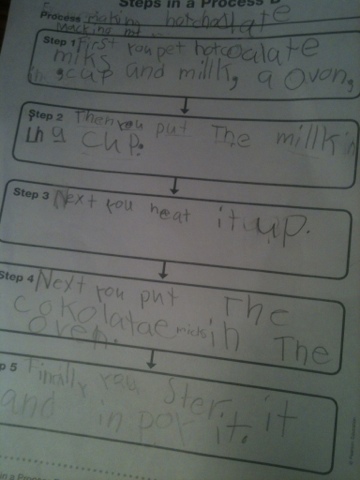 Steps in a Process
Process Making hotchoclate
Step 1 First you get hotcoalate
miks and millk, a oven,
in a cup
Step 2 Then you put The millk in
in a cup.
Step 3 Next you heat it up.
Step 4 Next you put The
cokolatae micks in The
oven.
p 5 Finally you Ster. it
and in poy it.
in a Process